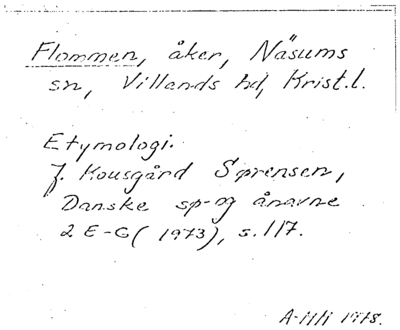 Flommen, åker, Näsums
sn, Villands hd, Krist.l.
Etymologi.
J. Kousgård Sørensen,
Danske sø- og ånavne
2 E-G (1973), s. 117.
1978.